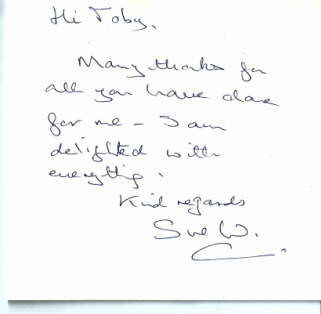 Hi Toby,
Many thanks for
all you have done
for me - I am
delighted with
everything.
Kind regards
Sue W.